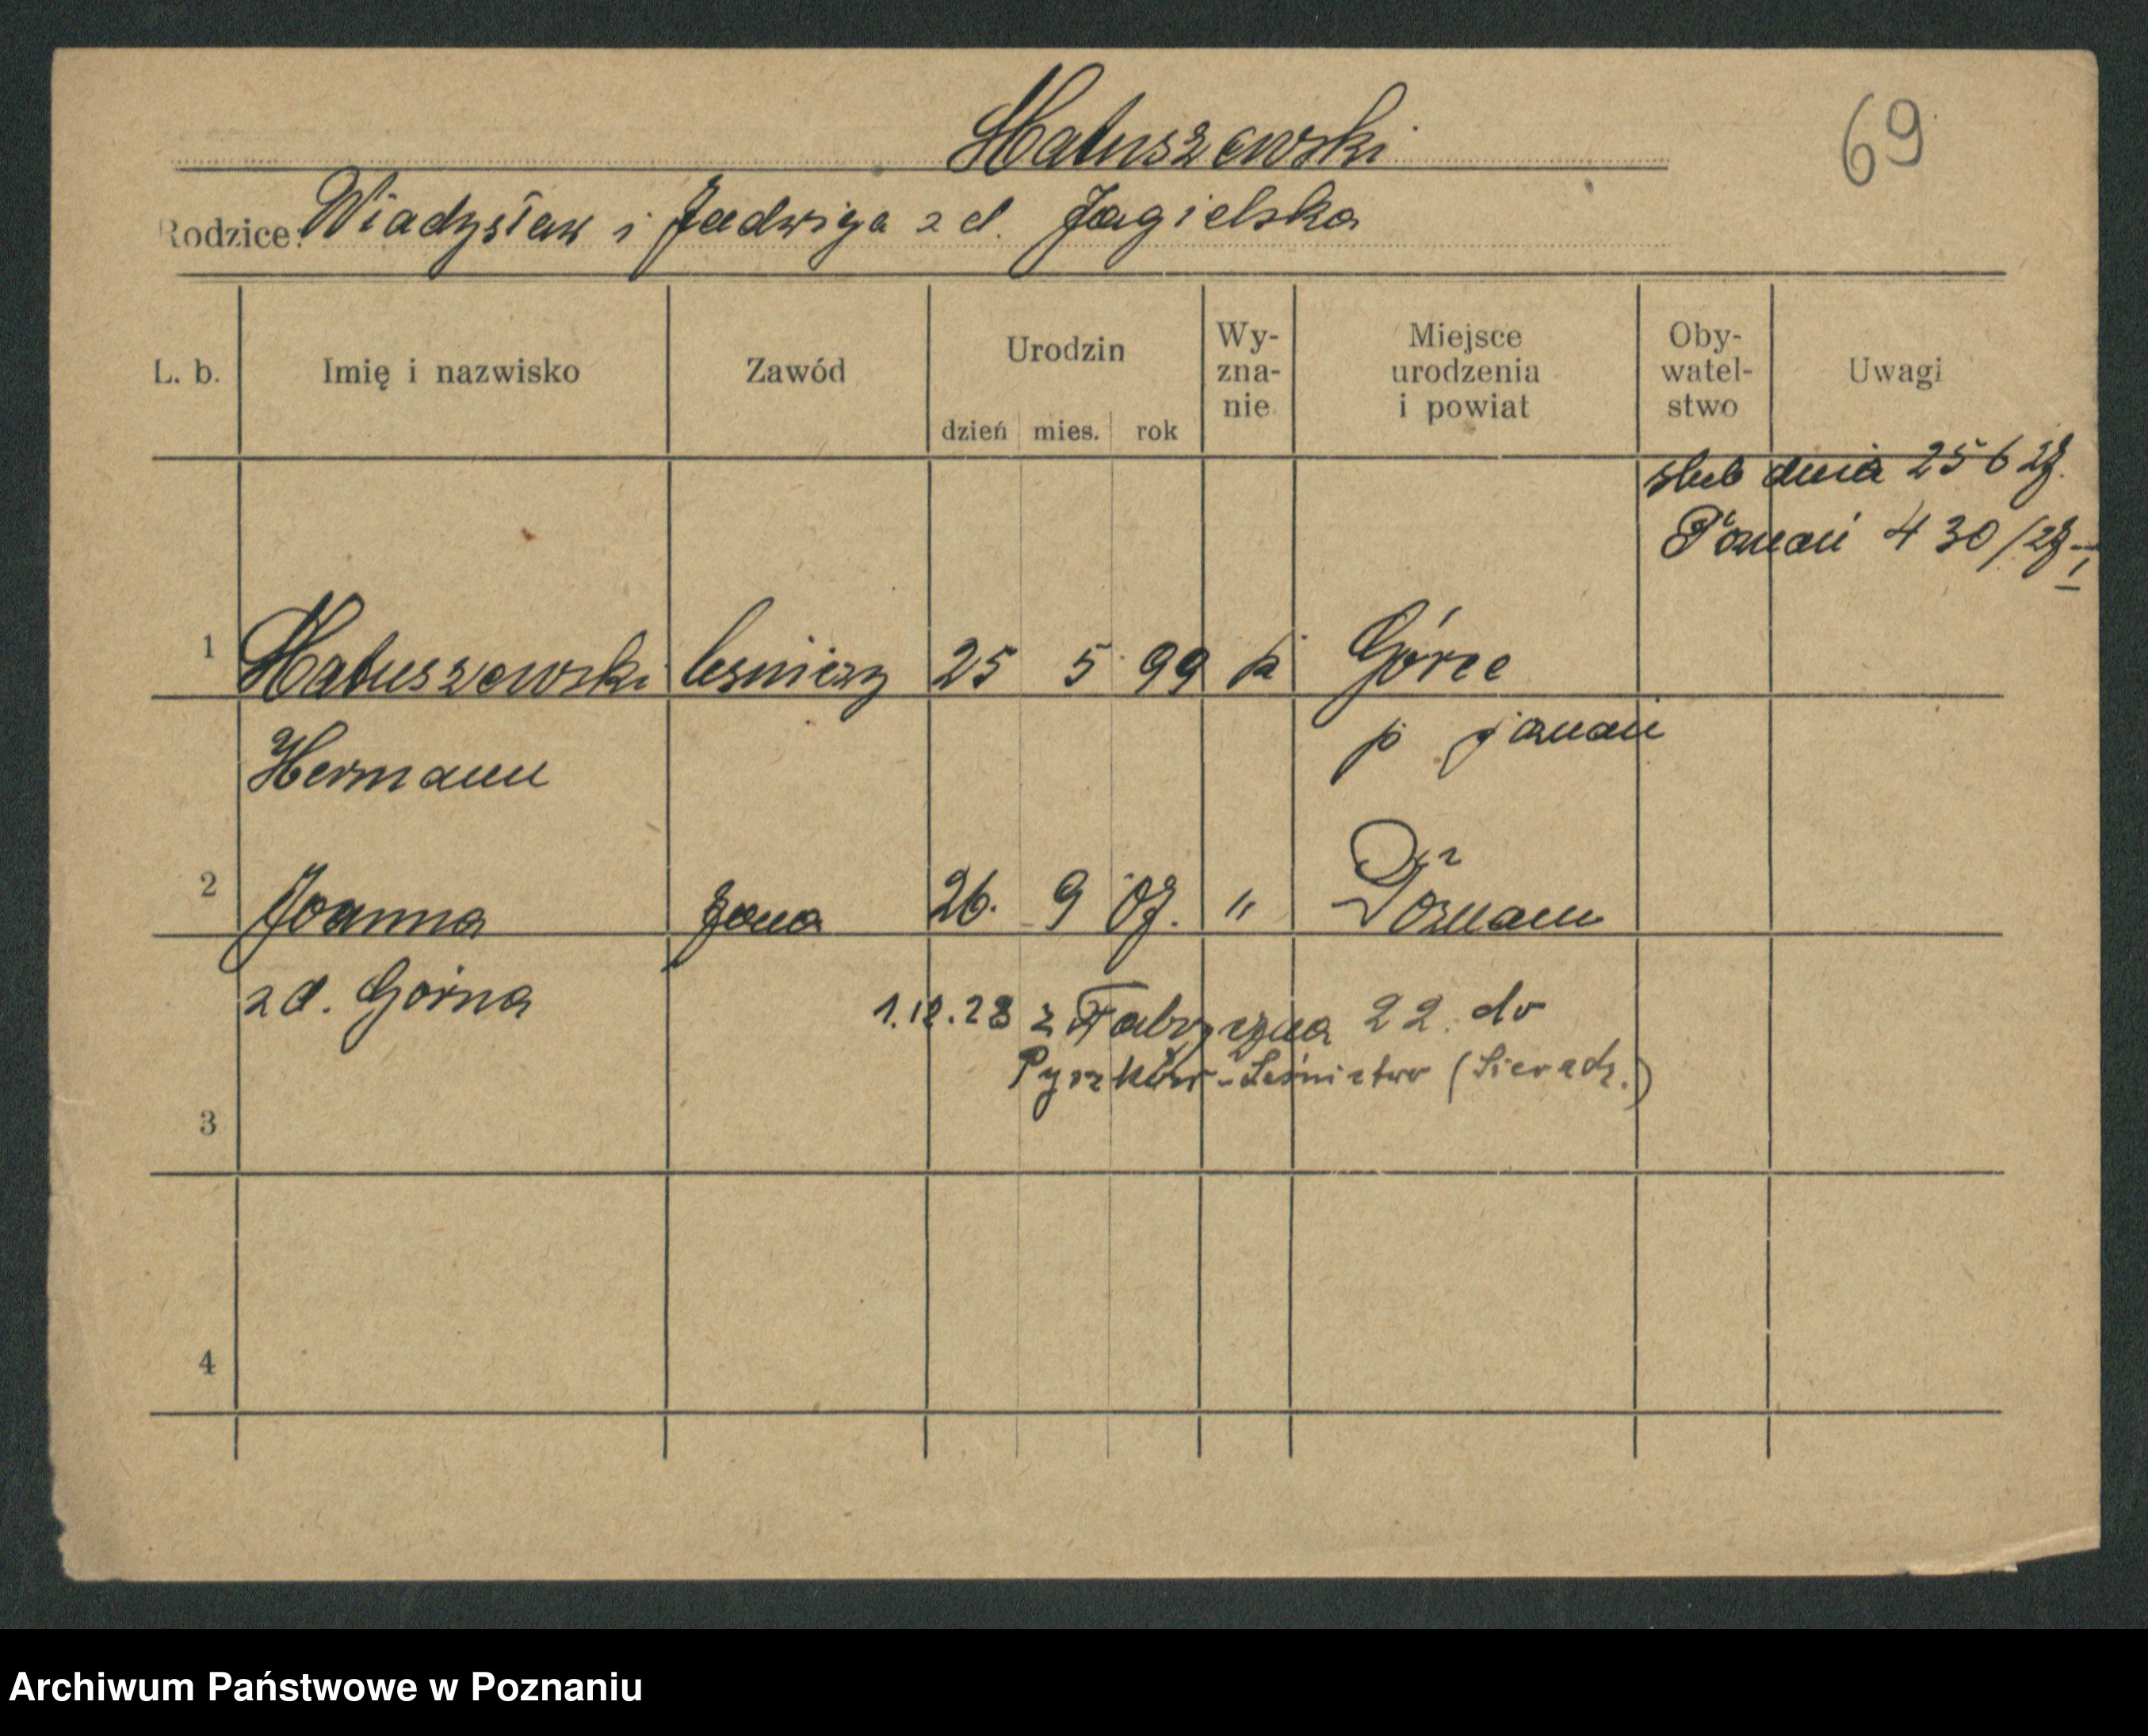 Matuszewski
69
Rodzice: Władysław i Jadwiga z d. Jagielska
L. b.
Imię i nazwisko
Zawód
Urodzin
dzień mies. rok
Wy-
zna-
nie
Miejsce
urodzenia
i powiat
Oby-
watel-
stwo
Uwagi
slub dnia 25 6 28.
Poznań 430/28 I
1 Matuszewski leśniczy 25 5 99 k Górce
Hermann
p
2 Joanna żona 26. 9 08. " Poznań
z d. Górna
1.12.28 z Fabryczna 22. do
Pyszków-Leśnictwo (Sieradz.)
3
4
Archiwum Państwowe w Poznaniu